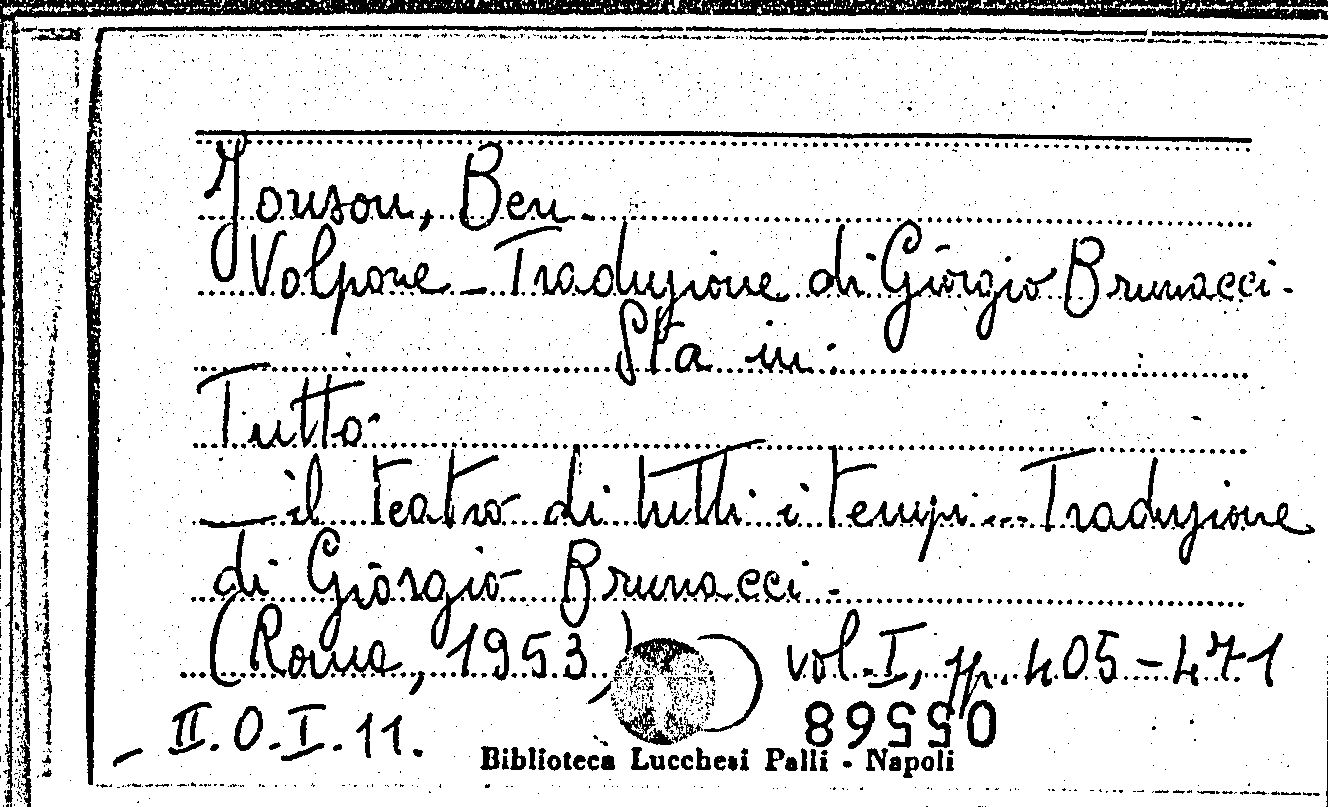 Jonson, Ben.
Volpone - Traduzione di Giorgio Brunacci.
Sta in:
Tutto
- il teatro di tutti i tempi - Traduzione
di Giorgio Brunacci.
(Roma, 1953,) vol. I, pp. 405-471
055568
- II.O.I.11.
Biblioteca Lucchesi Palli - Napoli